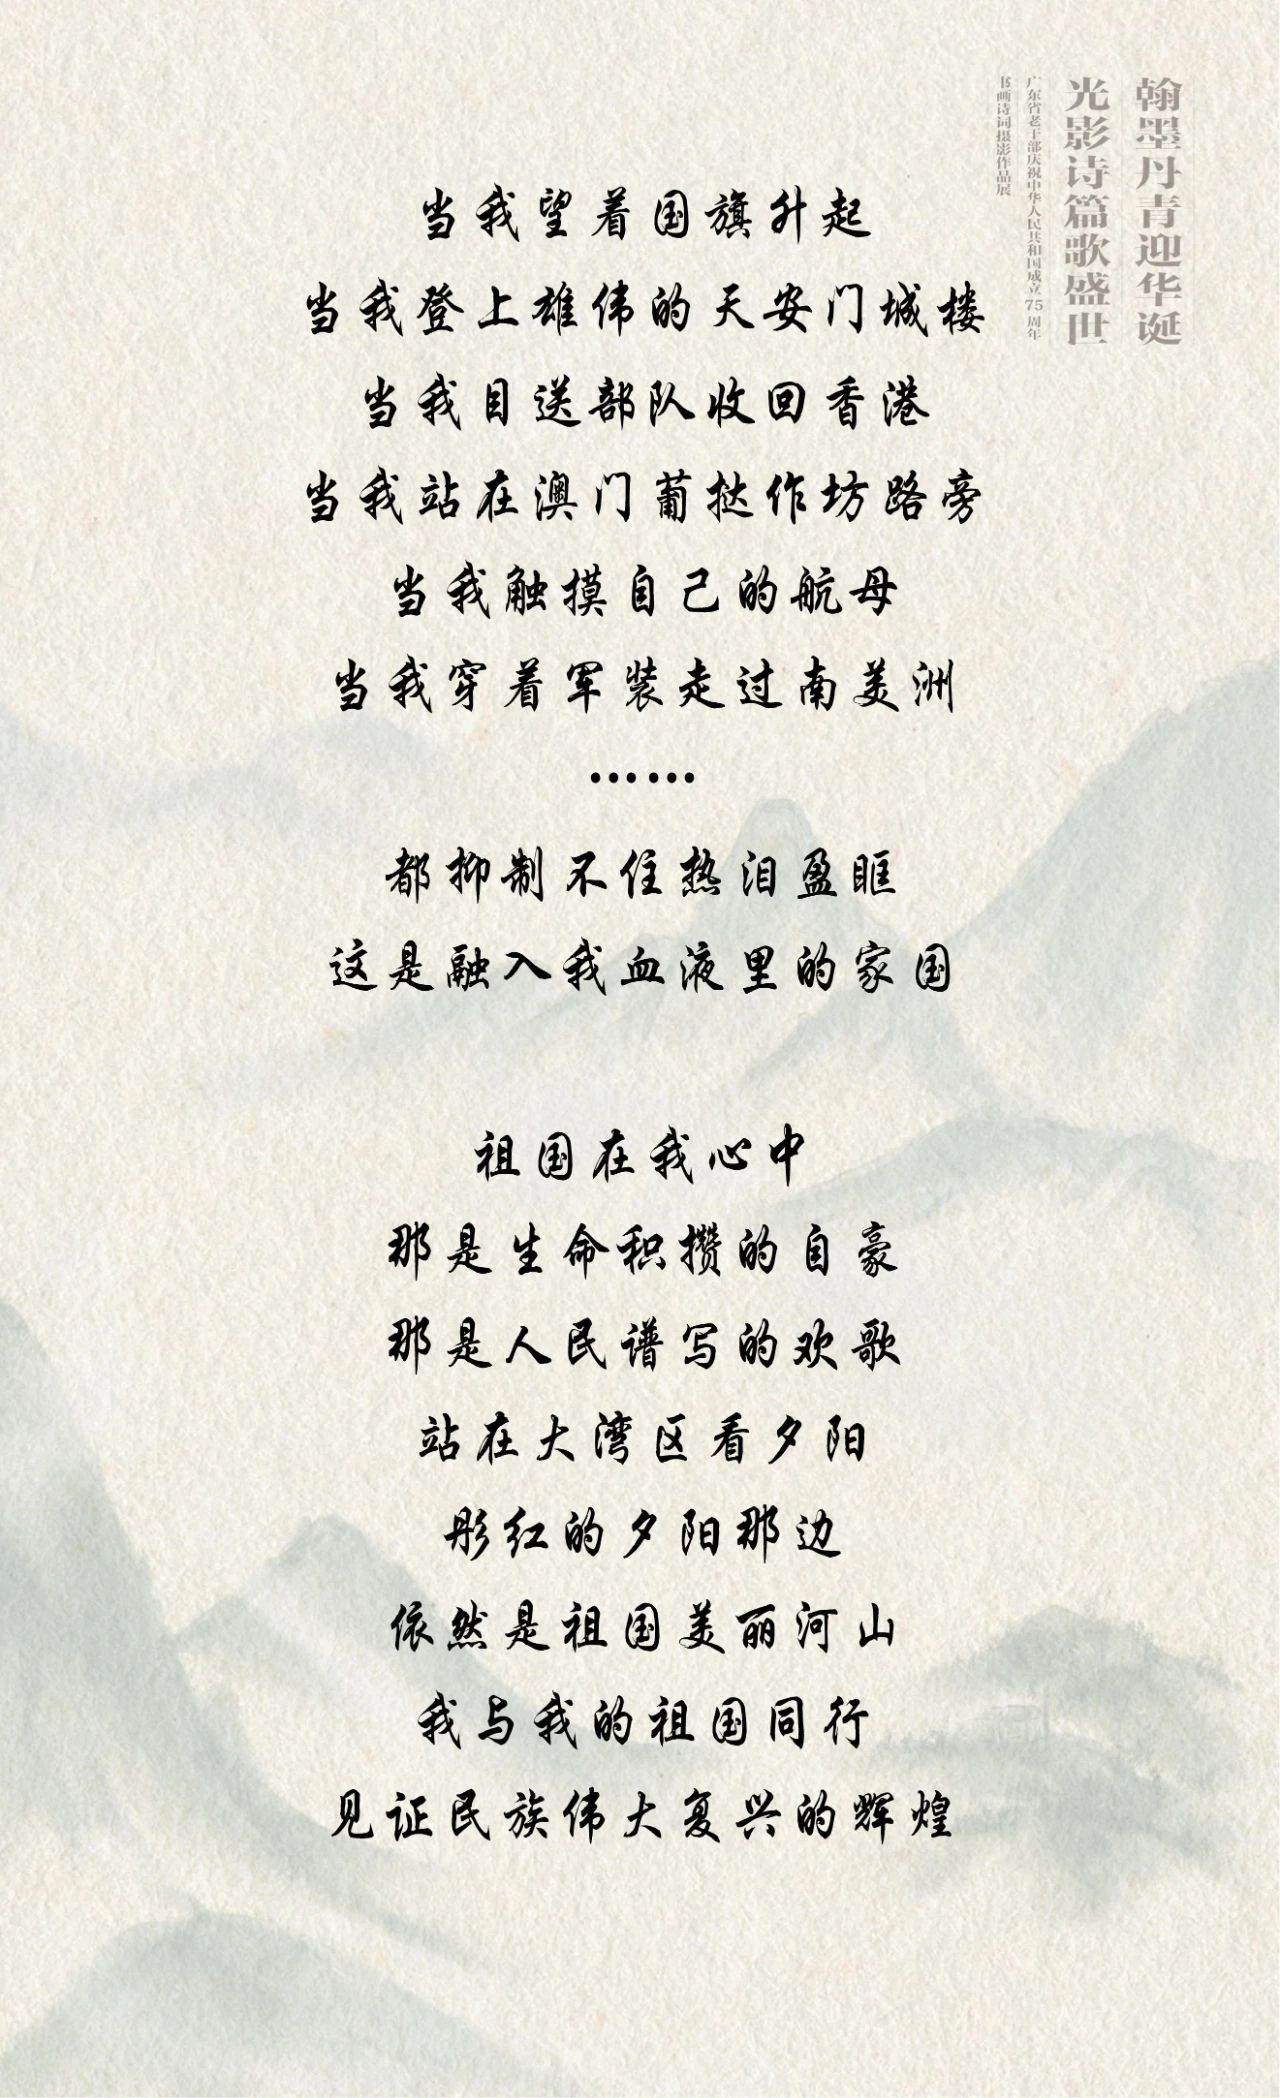 翰墨丹青迎华诞
光影诗篇歌盛世
广东省老干部庆祝中华人民共和国成立75周年
书画诗词摄影作品展
当我望着国旗升起
当我登上雄伟的天安门城楼
当我目送部队收回香港
当我站在澳门葡挞作坊路旁
当我触摸自己的航母
当我穿着军装走过南美洲
……
都抑制不住热泪盈眶
这是融入我血液里的家国
祖国在我心中
那是生命积攒的自豪
那是人民谱写的欢歌
站在大湾区看夕阳
彤红的夕阳那边
依然是祖国美丽河山
我与我的祖国同行
见证民族伟大复兴的辉煌